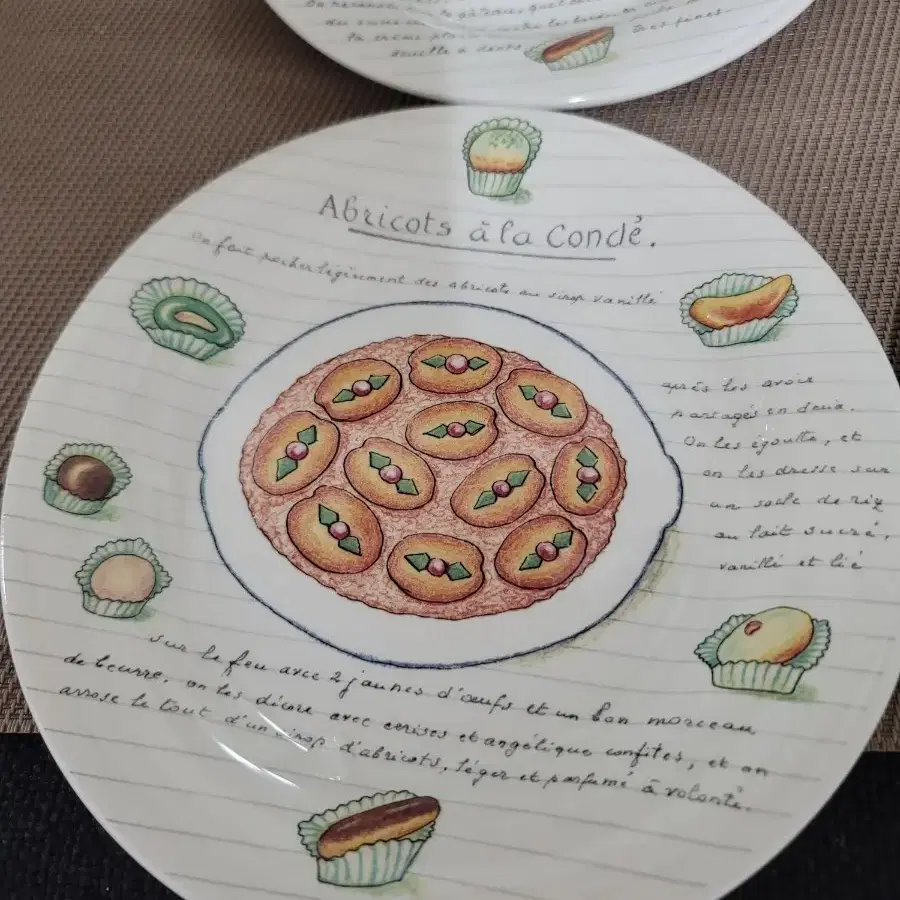 du sucre
la crème
douille à dents
très fines
Abricots à la Condé.
on fait pocher légèrement des abricots au sirop vanillé
après les avoir
partagés en deux.
On les égoutte, et
on les dresse sur
un socle de riz
au lait sucré,
vanillé et lié
sur le feu avec 2 jaunes d'œufs et un bon morceau
de beurre, on les décore avec cerises et angélique confites, et on
arrose le tout d'un sirop d'abricots, léger et parfumé à volonté.